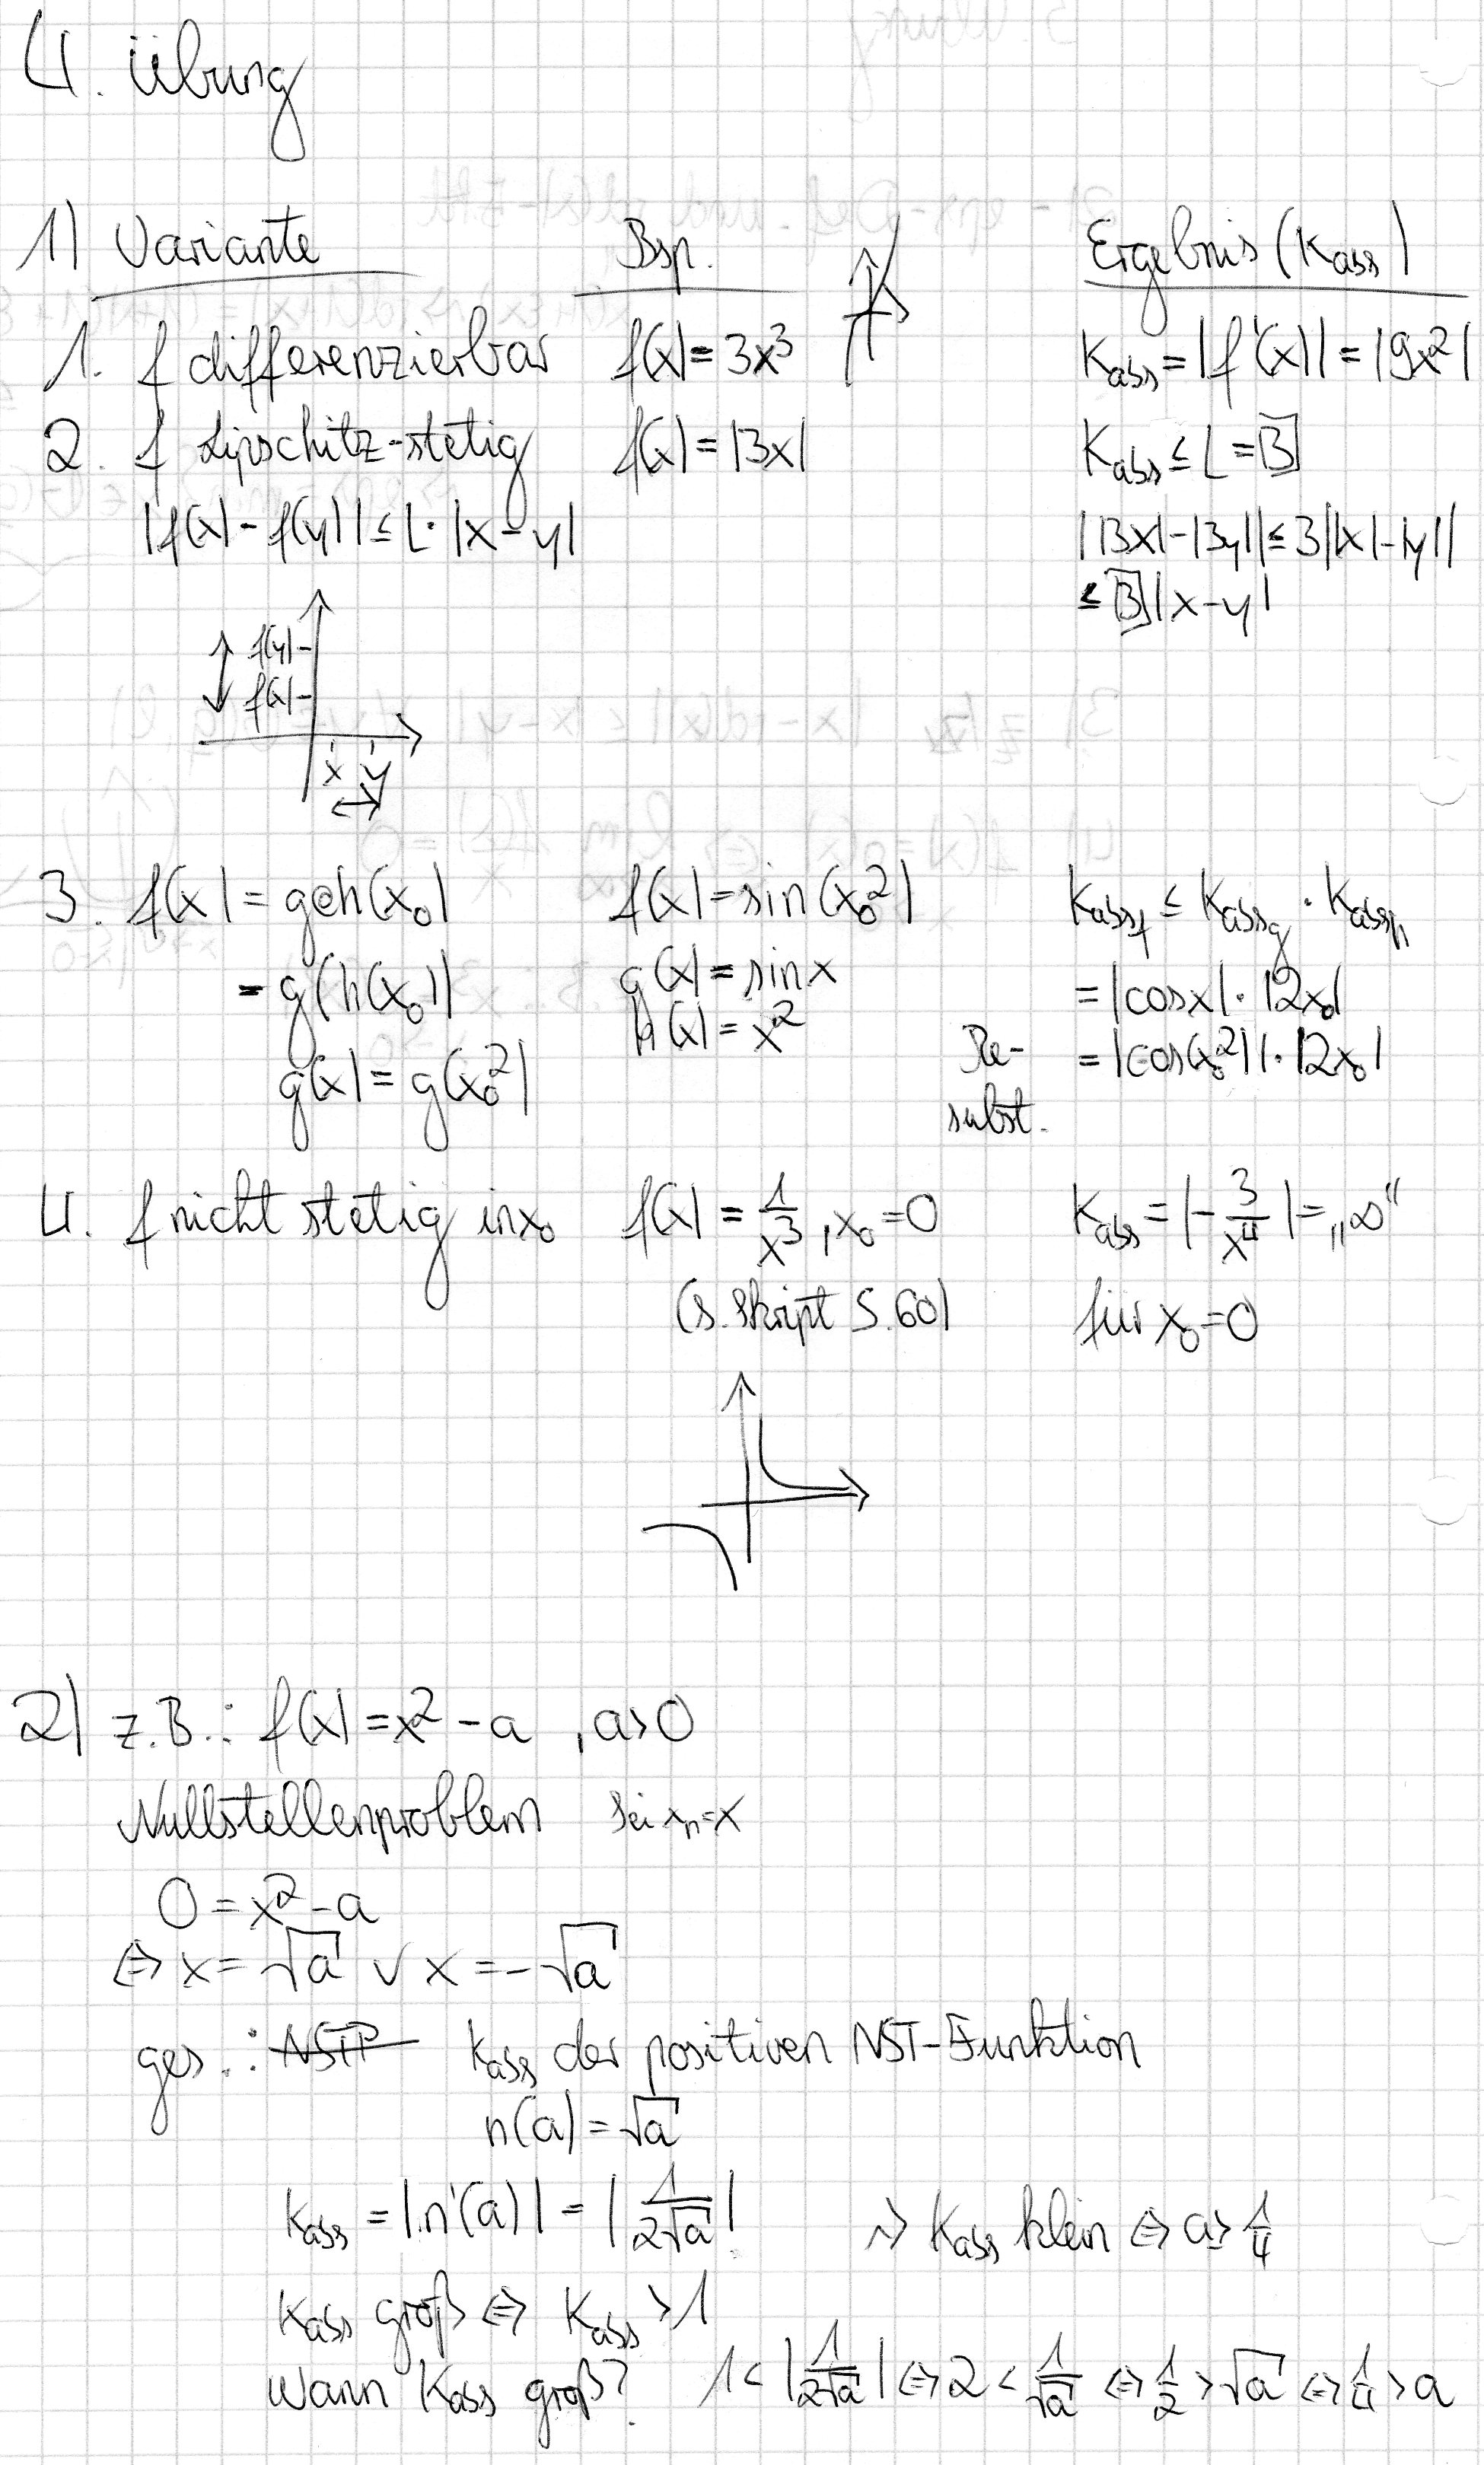 4. Übung
1) Variante Bsp. Ergebnis (Kabs)
1. f differenzierbar f(x) = 3x³ Kabs = |f'(x)| = |9x²|
2. f Lipschitz-stetig f(x) = |3x| Kabs ≤ L = 3
|f(x) - f(y)| ≤ L · |x-y| ||3x|-|3y|| ≤ 3||x|-|y||
≤ 3|x-y|
f(y)
f(x)
x y
3. f(x) = g∘h(x₀) f(x) = sin(x₀²) Kabs_f ≤ Kabs_g · Kabs_h
= g(h(x₀)) g(x) = sin x = |cos x| · |2x₀|
h(x) = x²
g(x) = g(x₀²) Re- = |cos(x₀²)| · |2x₀|
subst.
4. f nicht stetig in x₀ f(x) = 1/x³, x₀ = 0 Kabs = |-3/x⁴| = „∞“
(s. Skript S. 60) für x₀ = 0
2) z.B.: f(x) = x² - a , a > 0
Nullstellenproblem Sei xₙ = x
0 = x² - a
⇔ x = √a ∨ x = -√a
ges.: NSTP Kabs der positiven NST-Funktion
n(a) = √a
Kabs = |n'(a)| = |1/(2√a)| ⇝ Kabs klein ⇔ a ≥ 1/4
Kabs groß ⇔ Kabs > 1
Wann Kabs groß? 1 < |1/(2√a)| ⇔ 2 < 1/√a ⇔ 1/2 > √a ⇔ 1/4 > a